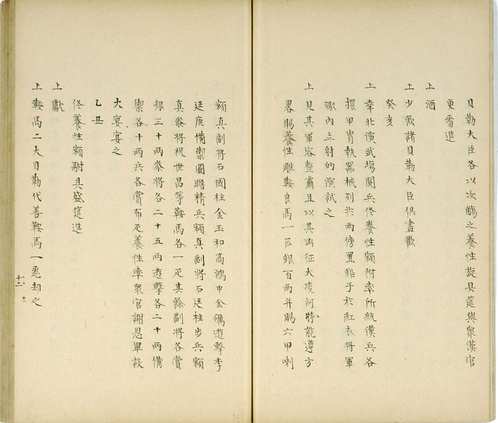 貝勒大臣各以次觴之養性旋具筵與衆漢官
更番進
上酒
上少飲諸貝勒大臣俱盡歡
癸亥
上幸北演武場閱兵佟養性額駙率所統漢兵各
擐甲胄執器械列於兩傍置鉛子於紅衣將軍
砲內立射的演試之
上見其軍容整肅且以其出征大凌河時能遵方
畧賜養性雕鞍良馬一匹銀百兩并賜六甲喇
額真副將石國柱金玉和高鴻中金礪遊擊李
延庚備禦圖瞻精兵額真副將石廷柱步兵額
真參將祝世昌等鞍馬各一疋其餘副將各賞
銀三十兩參將各二十五兩遊擊各二十兩備
禦各十兩兵各賞布疋養性率衆官謝恩畢設
大宴宴之
乙丑
佟養性額駙具盛筵進
上獻
上鞍馬二大貝勒代善鞍馬一悉却之